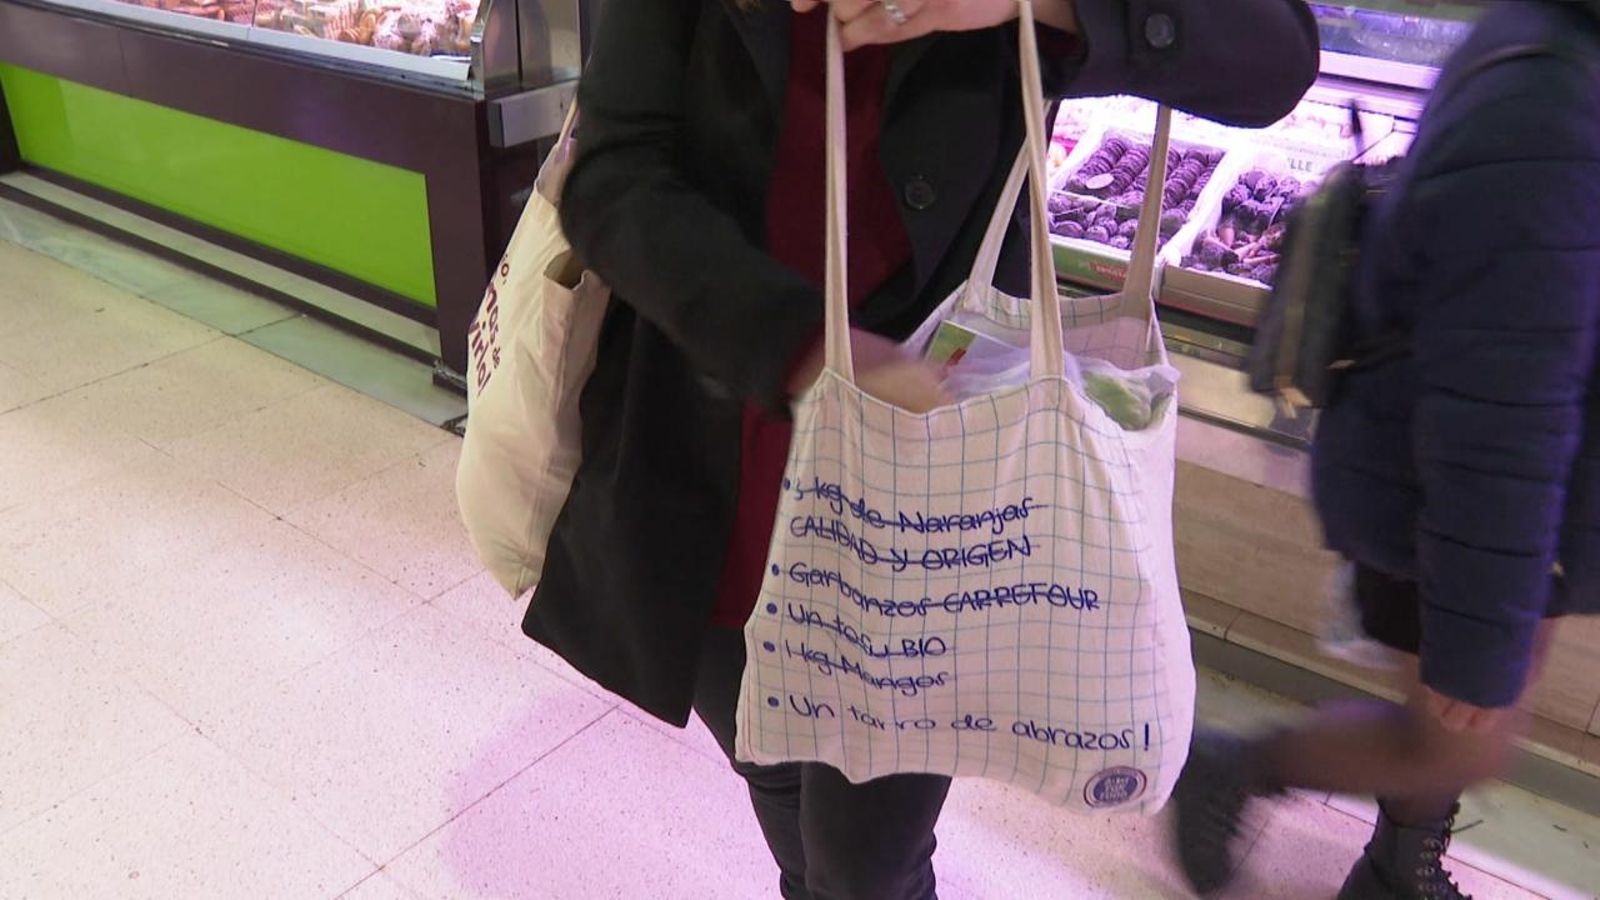 • 3 kg de Naranjas
CALIDAD Y ORIGEN
• Garbanzos CARREFOUR
• Un tofu BIO
• 1 kg Mangos
• Un tarro de abrazos!
ACT
FOR
FOOD